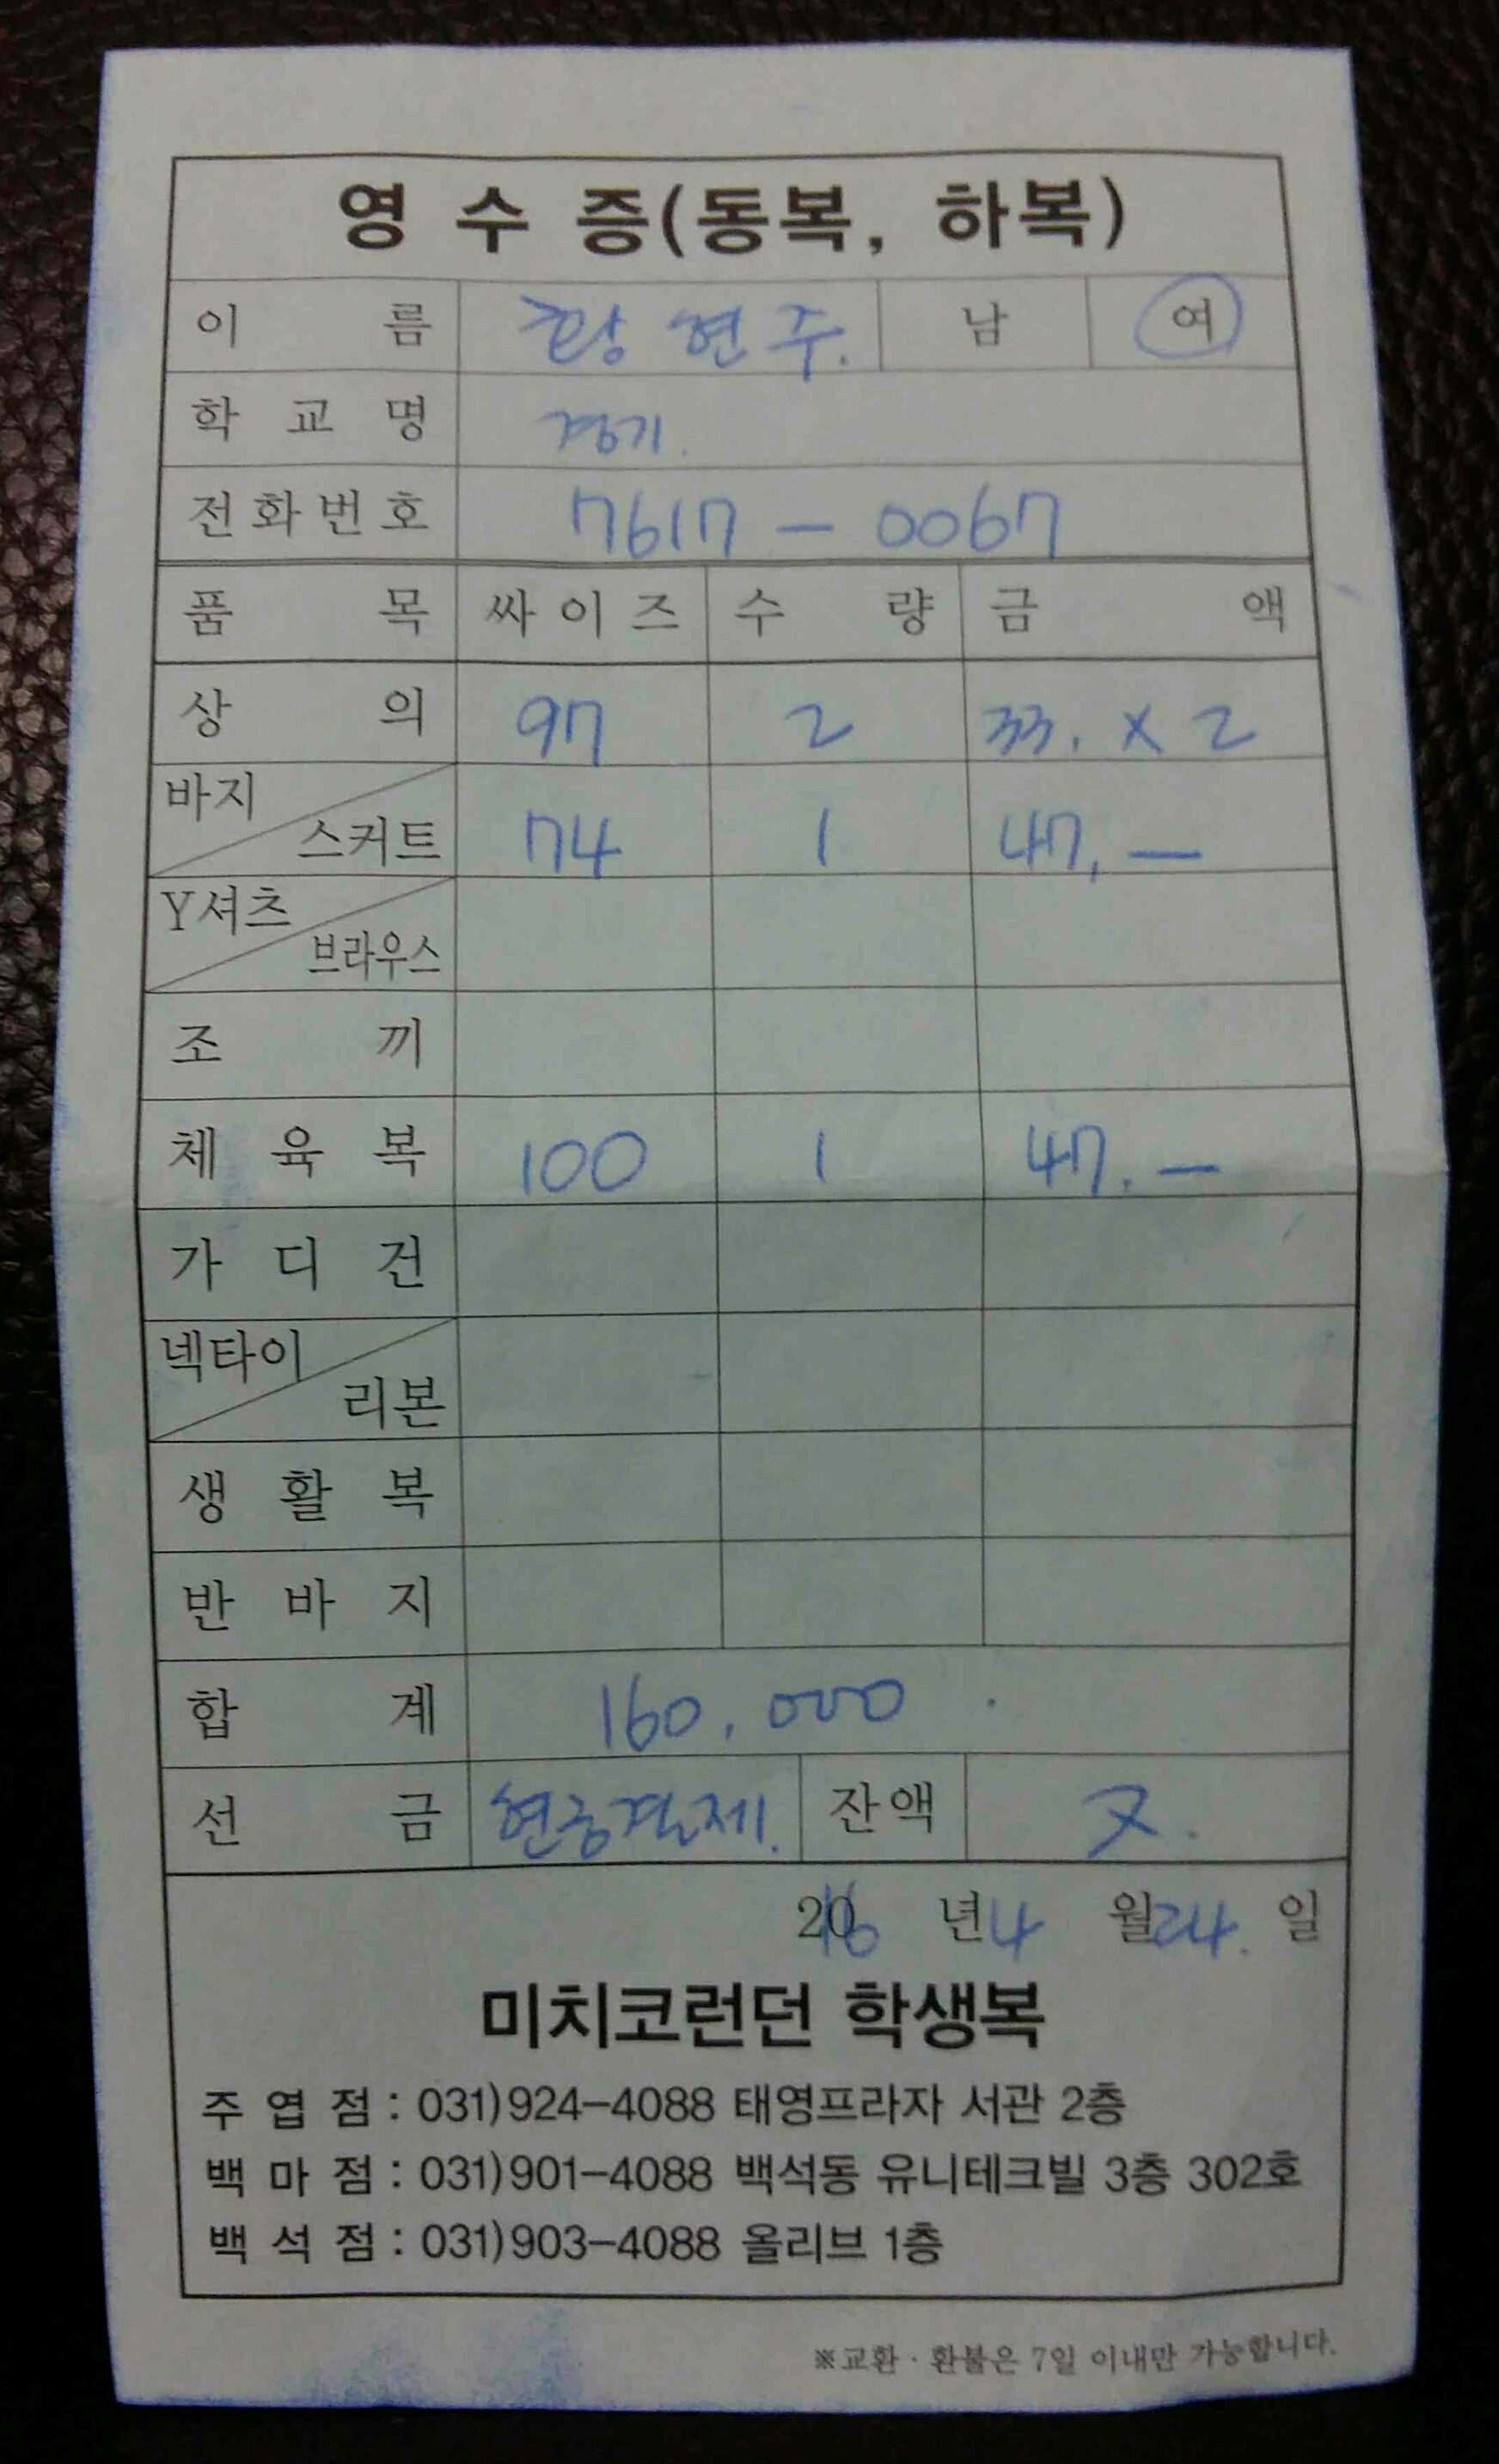 영 수 증(동복, 하복)
이 름 황현주. 남 여
학 교 명 경기.
전화번호 7617 - 0067
품 목 싸이즈 수 량 금 액
상 의 97 2 33. x 2
바지 스커트 74 1 47, —
Y셔츠 브라우스
조 끼
체 육 복 100 1 47. —
가 디 건
넥타이 리본
생 활 복
반 바 지
합 계 160,000
선 금 현금결제. 잔액
2016 년 4 월 24. 일
미치코런던 학생복
주 엽 점 : 031)924-4088 태영프라자 서관 2층
백 마 점 : 031)901-4088 백석동 유니테크빌 3층 302호
백 석 점 : 031)903-4088 올리브 1층
※교환 · 환불은 7일 이내만 가능합니다.